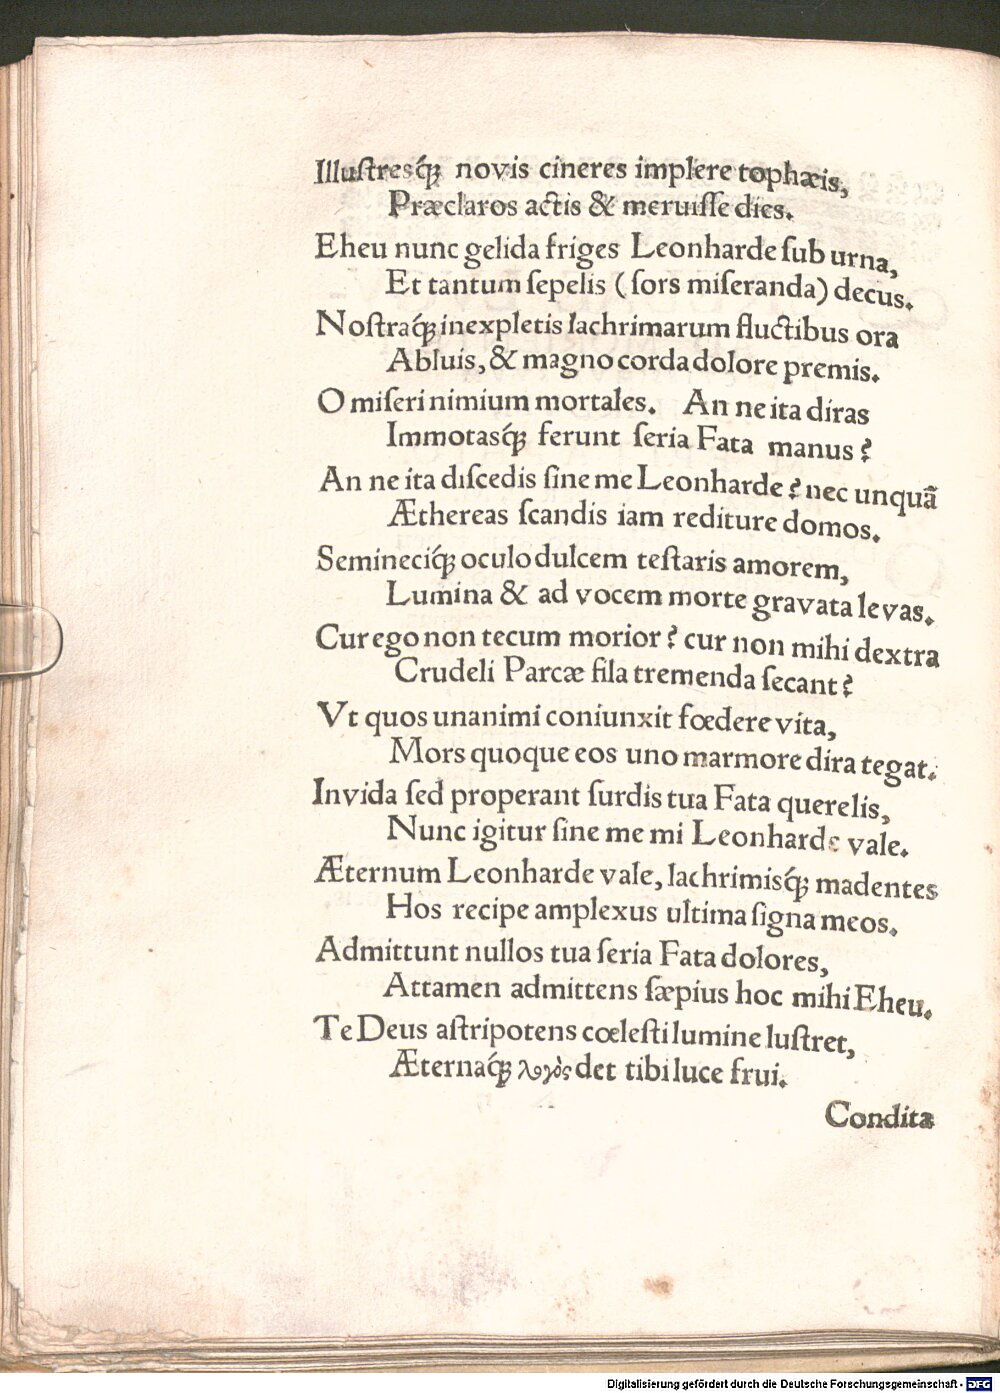 Illuſtresq́ꝫ novis cineres implere tophæis,
Præclaros actis & meruiſſe dies.
Eheu nunc gelida friges Leonharde ſub urna,
Et tantum ſepelis (ſors miſeranda) decus.
Noſtraq́ꝫ inexpletis lachrimarum fluctibus ora
Abluis, & magno corda dolore premis.
O miſeri nimium mortales. An ne ita diras
Immotasq́ꝫ ferunt ſeria Fata manus?
An ne ita diſcedis ſine me Leonharde? nec unquã
Æthereas ſcandis iam rediture domos.
Semineciq́ꝫ oculo dulcem teſtaris amorem,
Lumina & ad vocem morte gravata levas.
Cur ego non tecum morior? cur non mihi dextra
Crudeli Parcæ fila tremenda ſecant?
Vt quos unanimi coniunxit fœdere vita,
Mors quoque eos uno marmore dira tegat.
Invida ſed properant ſurdis tua Fata querelis,
Nunc igitur ſine me mi Leonharde vale.
Æternum Leonharde vale, lachrimisq́ꝫ madentes
Hos recipe amplexus ultima ſigna meos.
Admittunt nullos tua ſeria Fata dolores,
Attamen admittens ſæpius hoc mihi Eheu.
Te Deus aſtripotens cœleſti lumine luſtret,
Æternaq́ꝫ λογὸς det tibi luce frui.
Condita
Digitalisierung gefördert durch die Deutsche Forschungsgemeinschaft - DFG